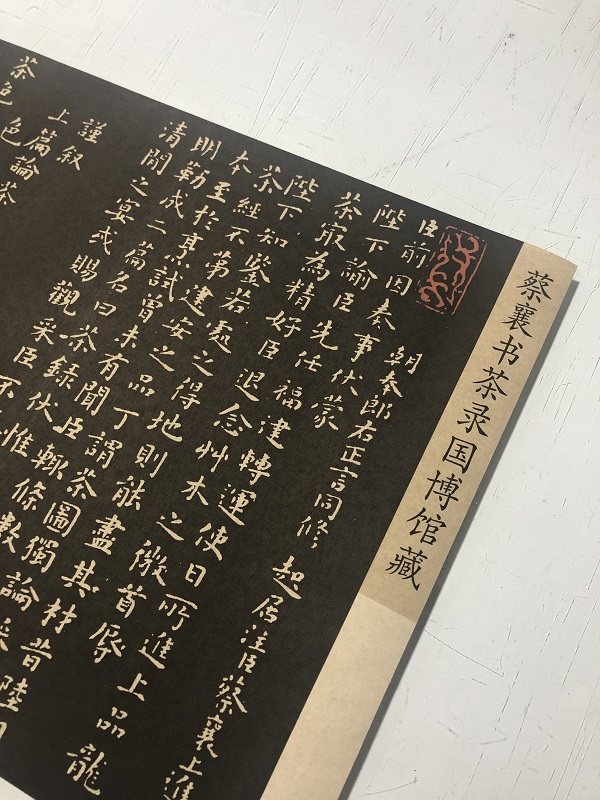 蔡襄书茶录国博馆藏
朝奉郎右正言同修 起居注臣蔡襄上進
臣前因奏事伏蒙
陛下諭臣先任福建轉運使日所進上品龍
茶㝡為精好臣退念艸木之微首辱
陛下知鑒若處之得地則能盡其材昔陸
茶經不第建安之品丁謂茶圖獨論采
本至於烹試曾未有聞臣輒條數
明勒成二篇名曰茶錄伏惟
清閒之宴或賜觀采臣不
謹叙
上篇論茶
茶色
色